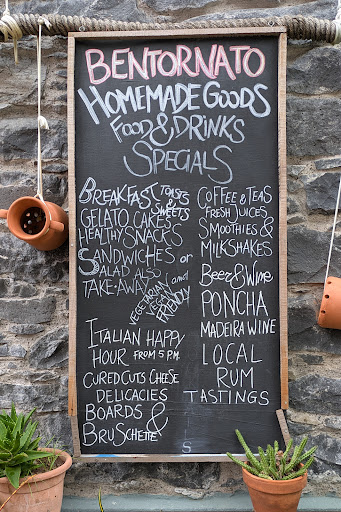 BENTORNATO
HOMEMADE GOODS
FOOD & DRINKS
SPECIALS
BREAKFAST TOASTS
& SWEETS
GELATO CAKES
HEALTHY SNACKS
SANDWICHES or
SALAD ALSO
TAKE-AWAY (and
VEGETARIAN
VEGAN
FRIENDLY
ITALIAN HAPPY
HOUR FROM 5 P.M.
CURED CUTS CHEESE
DELICACIES
BOARDS &
BRUSCHETTE
COFFEE & TEAS
FRESH JUICES
SMOOTHIES &
MILKSHAKES
BEER & WINE
PONCHA
MADEIRA WINE
LOCAL
RUM
TASTINGS
S